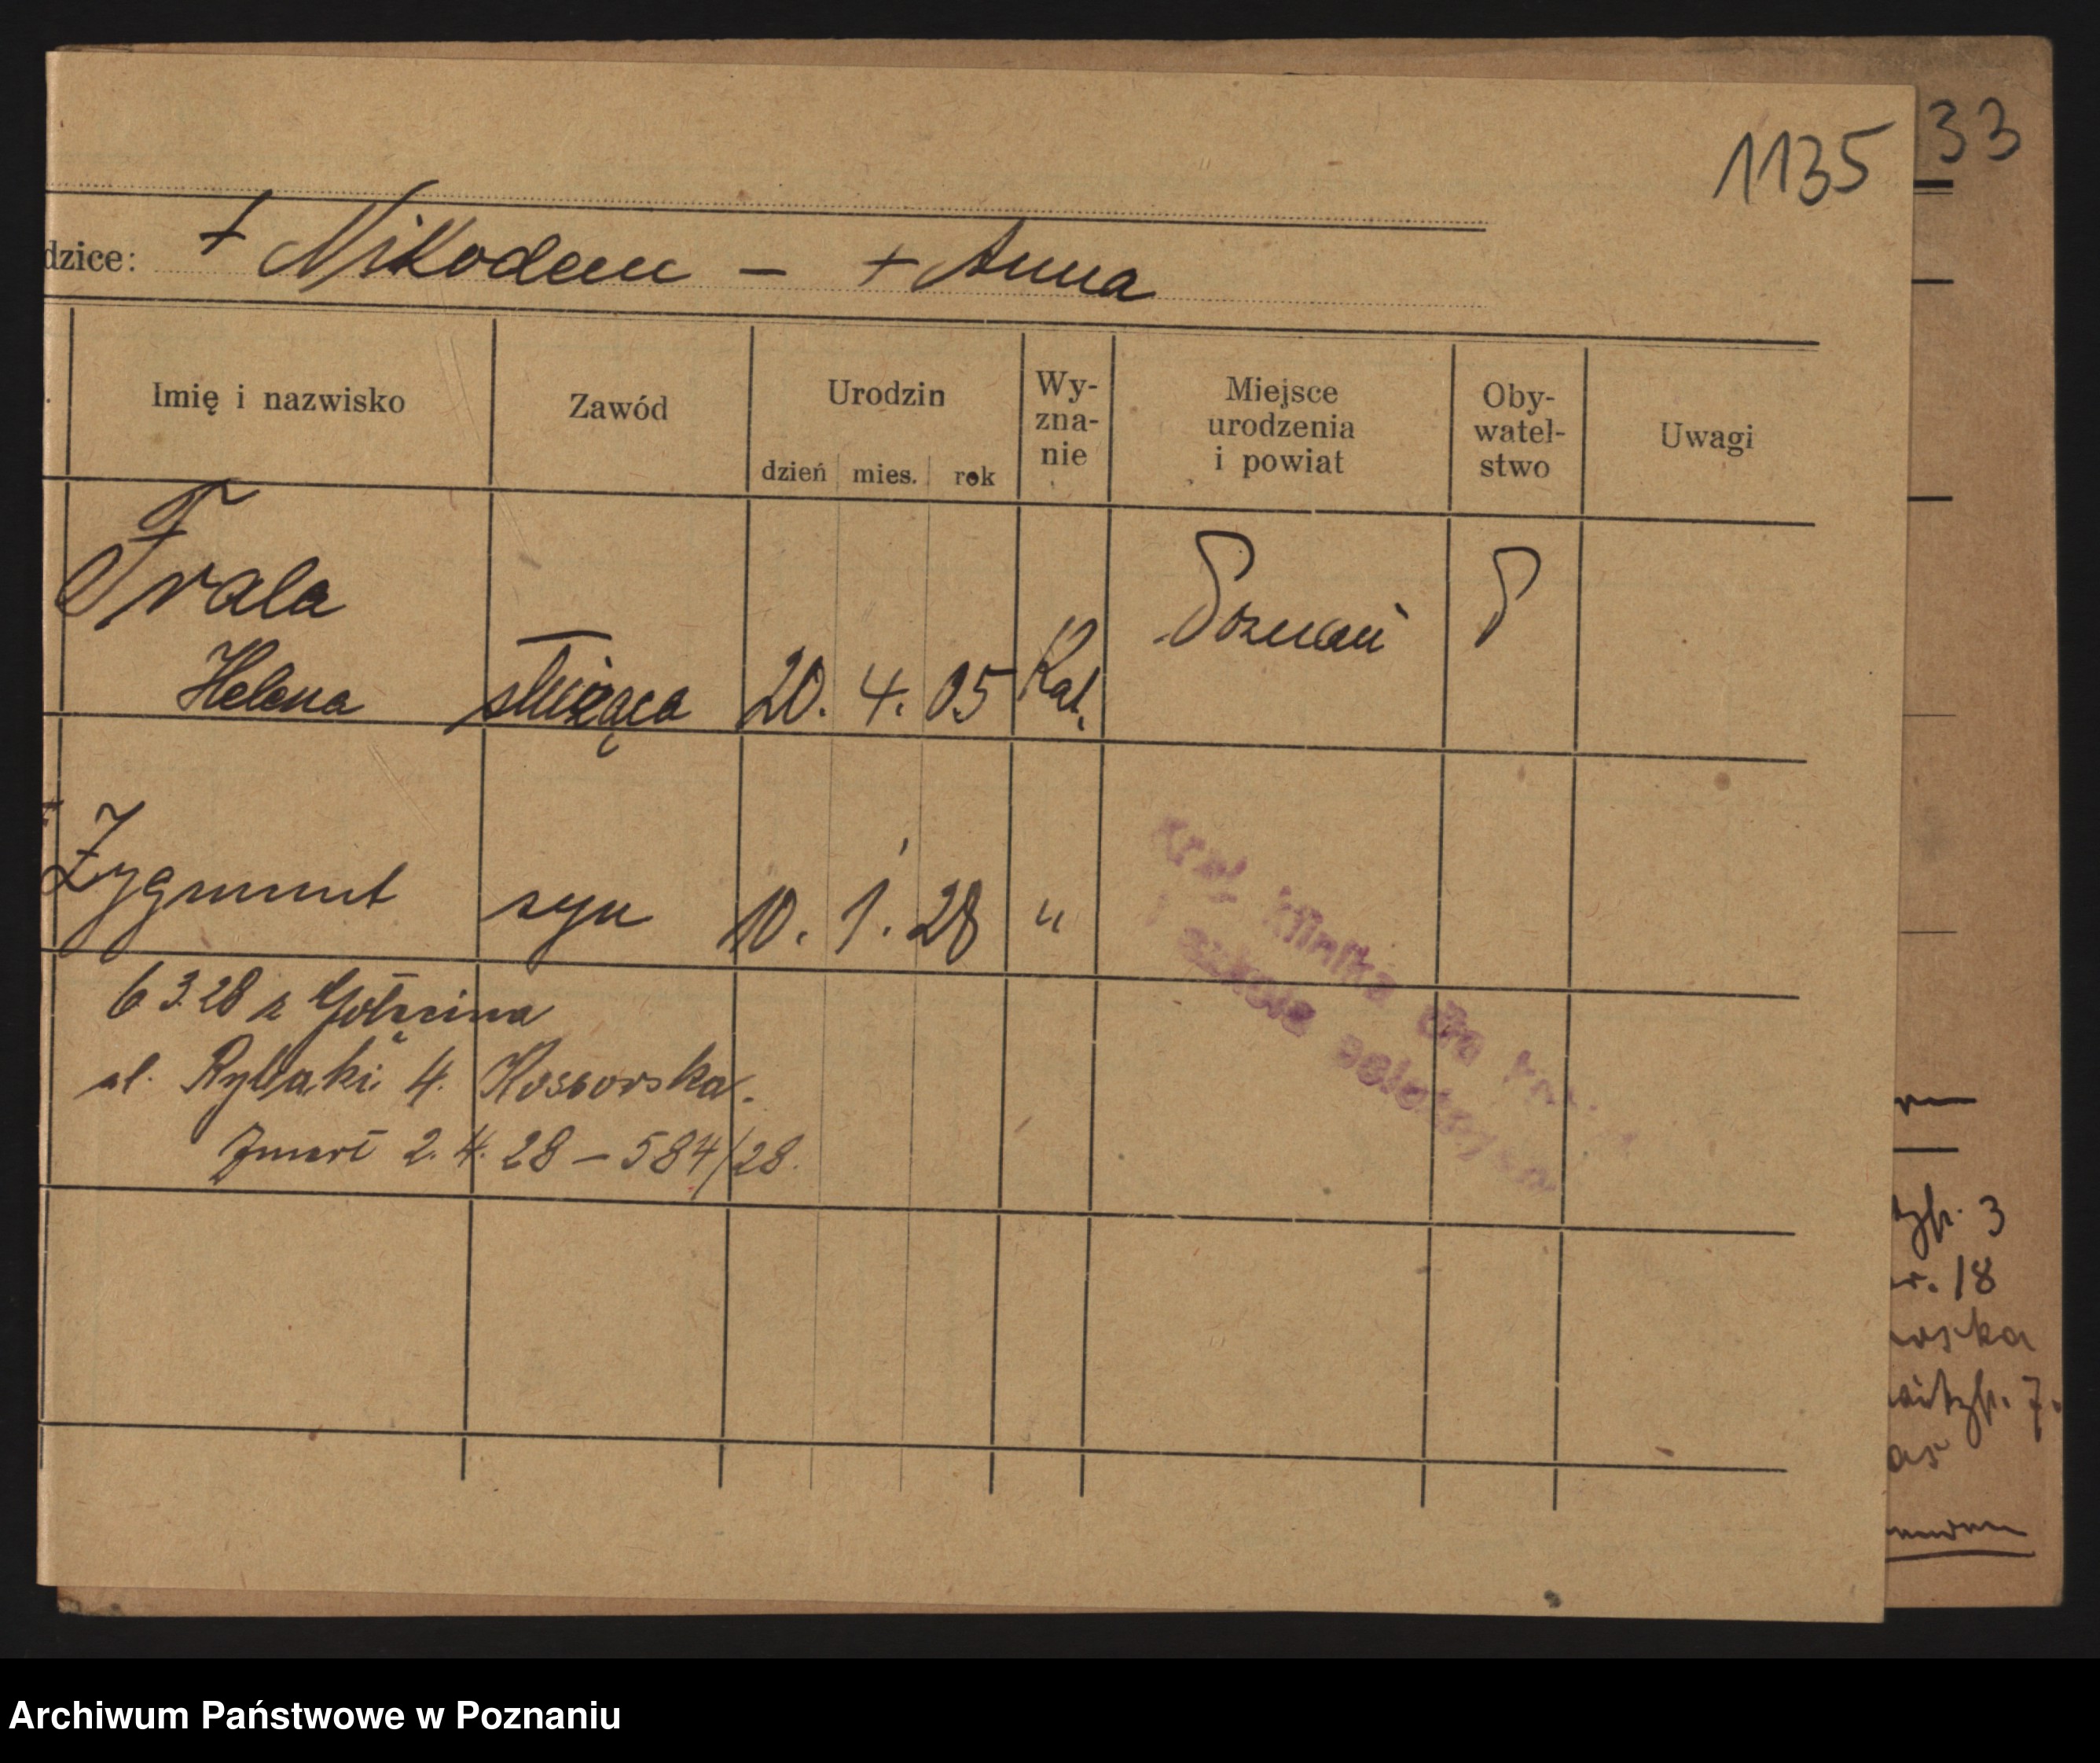 1135
33
dzice: + Nikodem - + Anna
Imię i nazwisko Zawód Urodzin Wy-zna-nie Miejsce urodzenia i powiat Oby-watel-stwo Uwagi
dzień mies. rok
Frala Poznań P
Helena służąca 20. 4. 05 Kat.
Zygmunt syn 10. 1. 28 "
Kraj. klinika dla
i szkoła położnych
6 3.28 z Gołęcina
ul. Rybaki 4. Kossowska.
Zmarł 2. 4. 28 - 584/28.
3
18
oska
7.
Archiwum Państwowe w Poznaniu